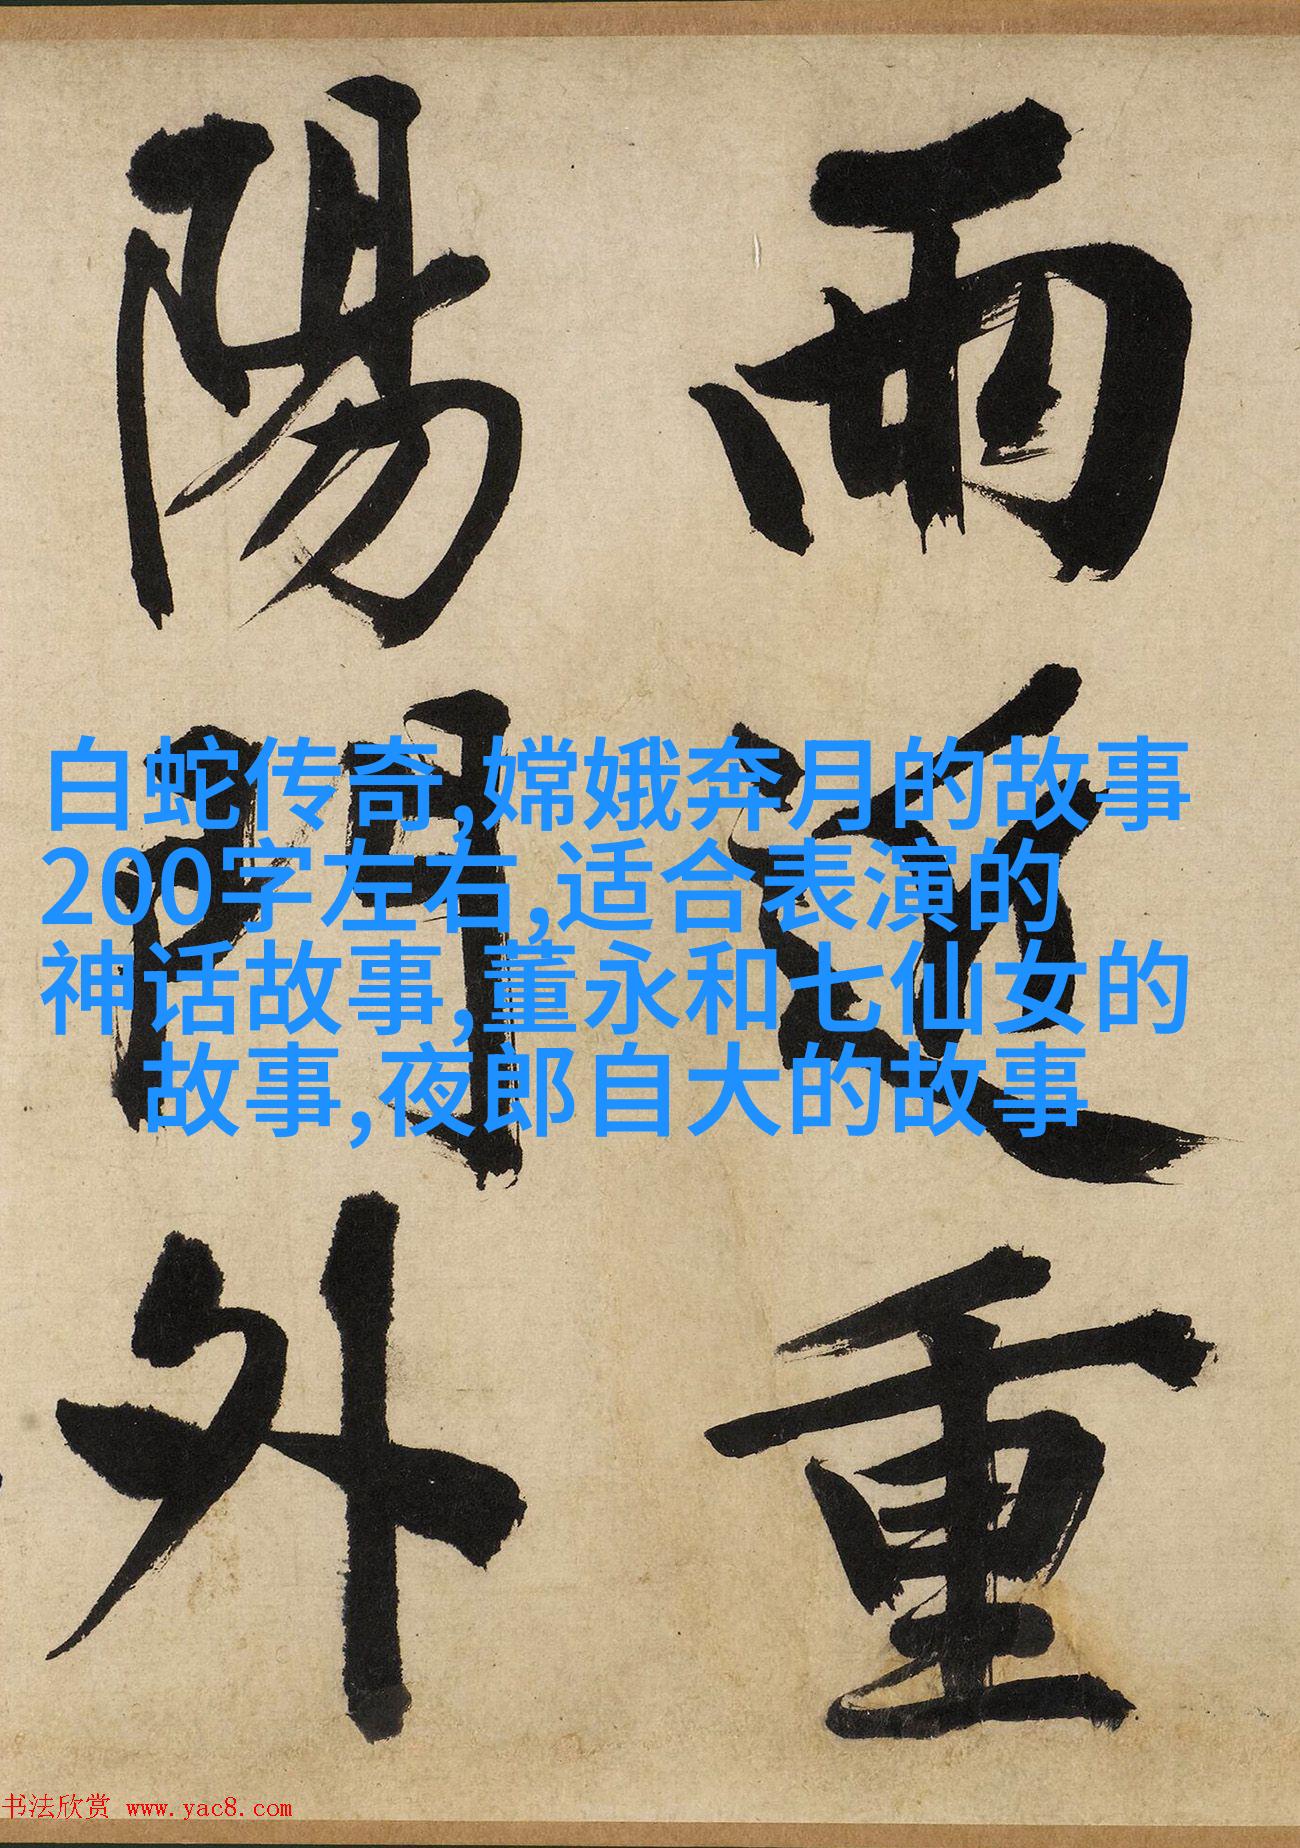 雨過重
陽門外
白蛇传奇,嫦娥奔月的故事
200字左右,适合表演的
神话故事,董永和七仙女的
故事,夜郎自大的故事
书法欣赏 www.yac8.com